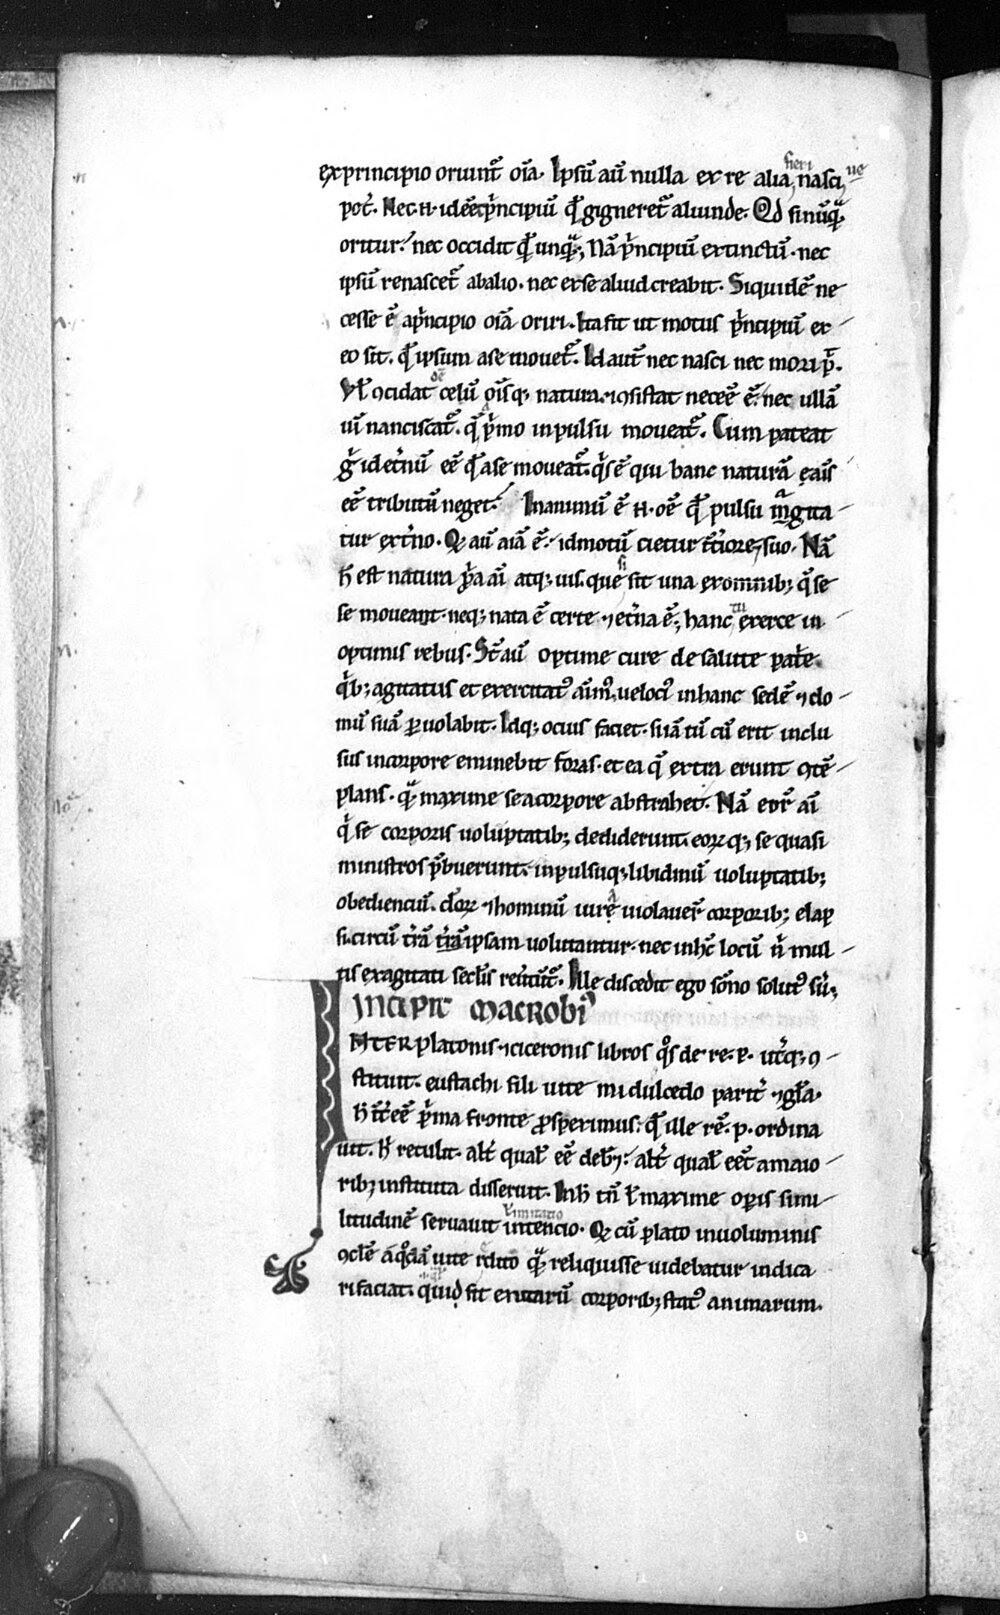 ex principio oriunt᷑ oīa. Ipsū aū nulla ex re alia fieri nasci ue
pot᷑. Nec .n. id eēt p̄ncipiū qd̄ gigneret᷑ aliunde. Qd si nūq̄
oritur. nec occidit qd̄ unq̄;, Nā p̄ncipiū extinctū. nec
ipsū renascet᷑ ab alio. nec ex se aliud creabit. Siquidē ne
cesse ē a p̄ncipio oīa oriri. Ita fit ut motus p̄ncipiū ex
eo sit. qd̄ ipsum a se mouet᷑. Id aut̄ nec nasci nec mori p̄t.
Vl̄ ꝯcidat oē celū oīsq; natura. ⁊ ꝯsistat neceē ē. nec ullā
uī nanciscat᷑. q̄ p̄mo inpulsu moueat᷑. Cum pateat
g̊ id et̄nū eē qd̄ a se moueat᷑. q̇s ē qui hanc naturā aīis
eē tributū neget. Inanimū ē .n. oē qd̄ pulsu agita
tur ext̄no. Qd̄ aū aīa ē. id motū cietur īt̄iore ⁊ suo. Nā
h̄ est natura p̄pa aī atq; uis. que si sit una ex omnib; q̄ se
se moueant. neq; nata ē certe ⁊ et̄na ē; hanc tu exerce in
optimis rebus. St̄ aū optime cure de salute pat̄e.
q̇b; agitatus et exercitat᷒ aīm᷒. ueloci᷒ in hanc sedē ⁊ do
mū suā ꝑuolabit. Idq; ocius faciet. si iā tū cū erit inclu
sus in corpore eminebit foras. et ea q̄ extra erunt ꝯtē
plans. q̄ maxime se a corpore abstrahet. Nā eoꝝ aī
q̇ se corporis uoluptatib; dediderunt. eoꝝq; se quasi
ministros p̄buerunt. inpulsuq; libidinū uoluptatib;
obedienciū. deoꝝ ⁊ hominū iura uiolauer̄ corporib; elap
si. circū t̄rā t̄rā ipsam uolutantur. nec in hc̄ locū n̄ mul
tis exagitati sc̄lis reūtunt᷑. Ille discedit ego sōno solut᷒ sū;
Incipit Macrobi᷒
INTER platonis ⁊ ciceronis libros q̊s de re .p. ut̄q; ꝯ
stituit. eustachi fili uite mi dulcedo parit̄ ⁊ gl̄a.
h̄ īt̄eē p̄ma fronte ꝓspeximus. qd̄ ille rē .p. ordina
uit. h̄ retulit. alt̄ qual̄ eē deb᷑et. alt̄ qual̄ eēt a maio
rib; instituta disseruit. In h̄ tn̄ ul̄ maxime oꝑis simi
litudinē seruauit ul̄ imitatio intencio. Qd̄ cū plato in uoluminis
ꝯcl̄e a q̊dā uite reddito q̄ reliquisse uidebatur indica
ri faciat. quid sit exutarū corporib; stat᷒ animarum.